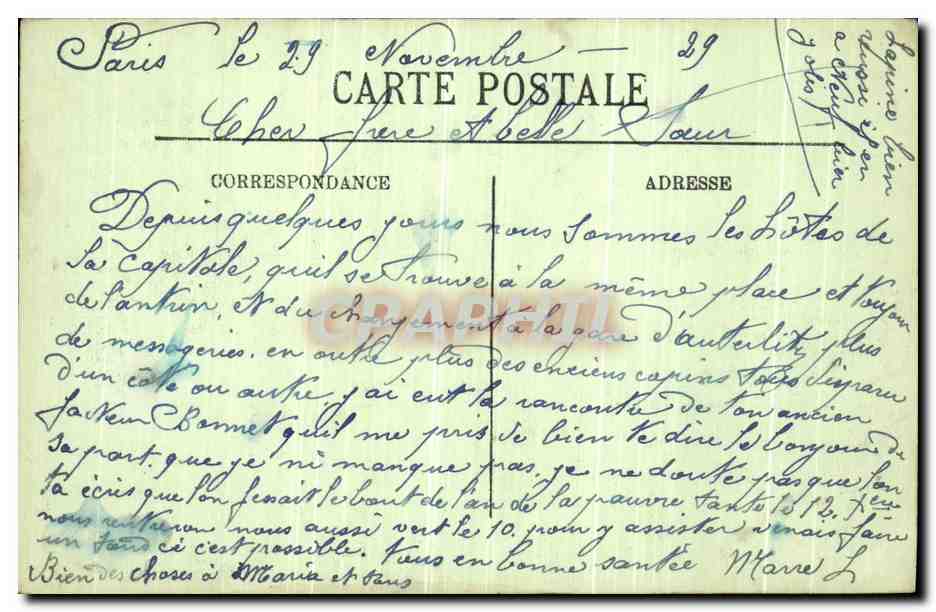 Paris le 29 Novembre — 29
CARTE POSTALE
Cher frere et belle Sœur
CORRESPONDANCE
ADRESSE
Depuis quelques jours nous sommes les hôtes de
la capitale, qu'il se trouve à la même place et toujours
de l'antrin, et du changement à la gare d'auterlitz plus
de messageries. en outre plus des enciens copins tous disparu
d'un côté ou autre j'ai eut la rancontre de ton ancien
facteur Bonnet qu'il me pris de bien te dire le bonjour de
sa part. que je ni manque pas. je ne doute pas que l'on
ta écris que l'on fessait le bout de l'an de la pauvre tante le 12. Xbre
nous rentreron nous aussi vert le 10. pour y assister venais faire
un ci c'est possible. Tous en bonne santée Marre L
Bien des choses à Maria et tous
Lapine bien
russi il en
a Neuf bien
jolis
CPAPHIL